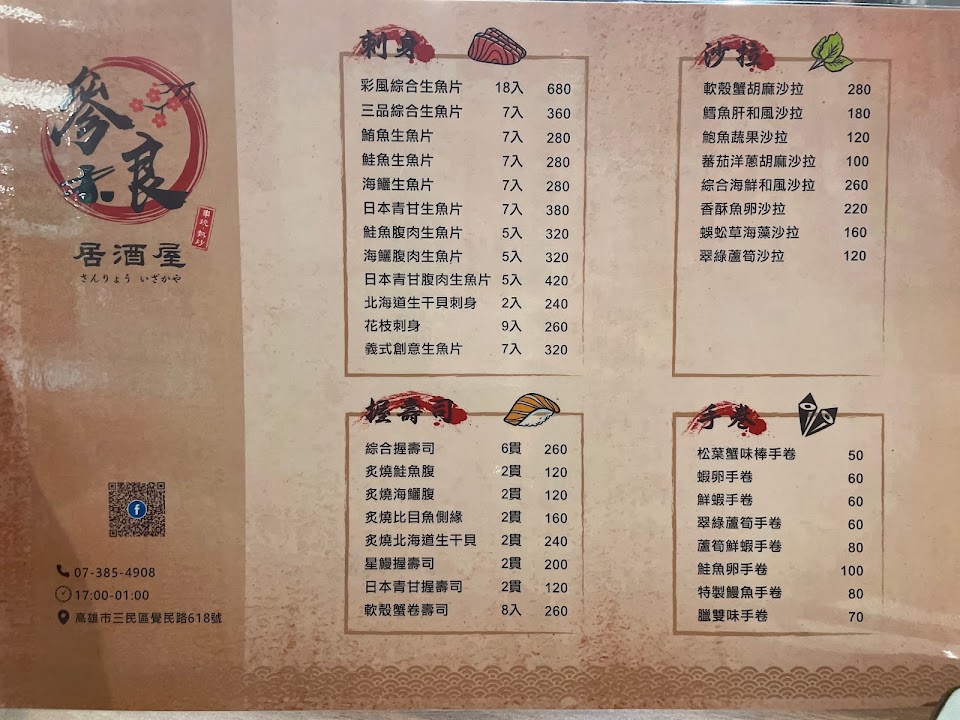 參良
串燒.熱炒
居酒屋
さんりょう いざかや
f
07-385-4908
17:00-01:00
高雄市三民區覺民路618號
刺身
彩風綜合生魚片 18入 680
三品綜合生魚片 7入 360
鮪魚生魚片 7入 280
鮭魚生魚片 7入 280
海鱺生魚片 7入 280
日本青甘生魚片 7入 380
鮭魚腹肉生魚片 5入 320
海鱺腹肉生魚片 5入 320
日本青甘腹肉生魚片 5入 420
北海道生干貝刺身 2入 240
花枝刺身 9入 260
義式創意生魚片 7入 320
沙拉
軟殼蟹胡麻沙拉 280
鱈魚肝和風沙拉 180
鮑魚蔬果沙拉 120
蕃茄洋蔥胡麻沙拉 100
綜合海鮮和風沙拉 260
香酥魚卵沙拉 220
蜈蚣草海藻沙拉 160
翠綠蘆筍沙拉 120
握壽司
綜合握壽司 6貫 260
炙燒鮭魚腹 2貫 120
炙燒海鱺腹 2貫 120
炙燒比目魚側緣 2貫 160
炙燒北海道生干貝 2貫 240
星鰻握壽司 2貫 200
日本青甘握壽司 2貫 120
軟殼蟹卷壽司 8入 260
手卷
松葉蟹味棒手卷 50
蝦卵手卷 60
鮮蝦手卷 60
翠綠蘆筍手卷 60
蘆筍鮮蝦手卷 80
鮭魚卵手卷 100
特製鰻魚手卷 80
臘雙味手卷 70